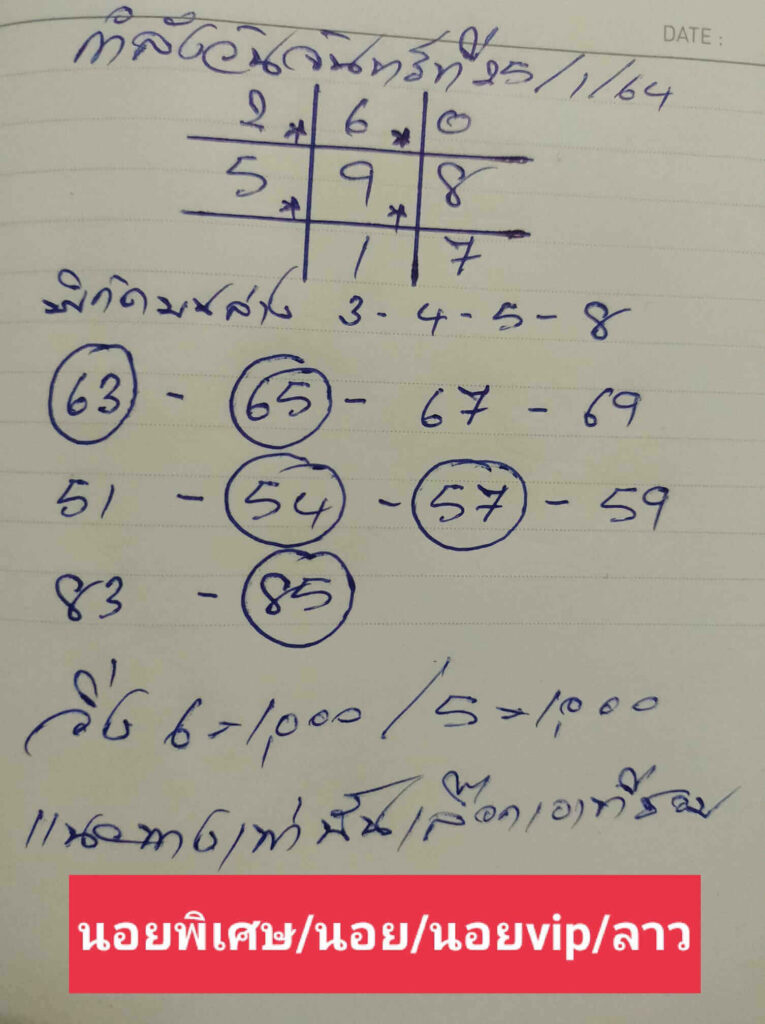 DATE :
กำลังวันจันทร์ที่ 25/1/64
2 * 6 * 0
5 * 9 * 8
1 7
พิกัดบนล่าง 3-4-5-8
63 - 65 - 67 - 69
51 - 54 - 57 - 59
83 - 85
วิ่ง 6=1,000 / 5=1,000
แนะทางเท่านั้นเลือกเอาที่ชอบ
นอยพิเศษ/นอย/นอยvip/ลาว